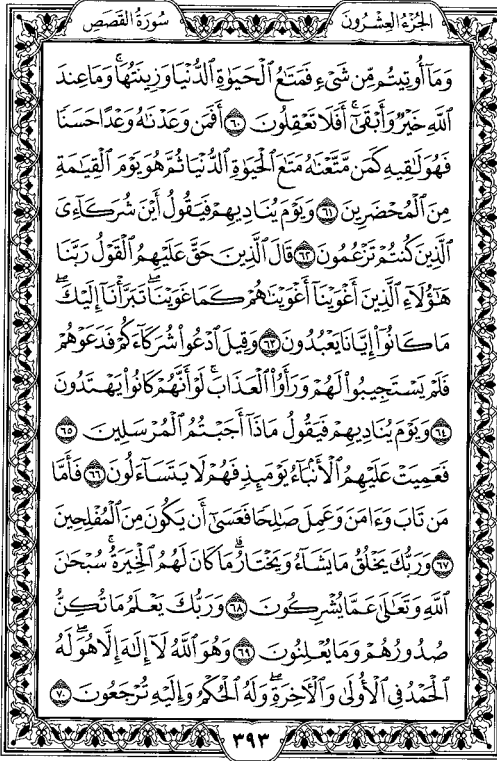 الجُزْءُ العِشْرُونَ
سُورَةُ القَصَصِ
وَمَآ أُوتِيتُم مِّن شَىْءٍ فَمَتَٰعُ الْحَيَوٰةِ الدُّنْيَا وَزِينَتُهَا ۚ وَمَا عِندَ
اللَّهِ خَيْرٌ وَأَبْقَىٰٓ ۚ أَفَلَا تَعْقِلُونَ ٦٠ أَفَمَن وَعَدْنَٰهُ وَعْدًا حَسَنًا
فَهُوَ لَٰقِيهِ كَمَن مَّتَّعْنَٰهُ مَتَٰعَ الْحَيَوٰةِ الدُّنْيَا ثُمَّ هُوَ يَوْمَ الْقِيَٰمَةِ
مِنَ الْمُحْضَرِينَ ٦١ وَيَوْمَ يُنَادِيهِمْ فَيَقُولُ أَيْنَ شُرَكَآءِىَ
الَّذِينَ كُنتُمْ تَزْعُمُونَ ٦٢ قَالَ الَّذِينَ حَقَّ عَلَيْهِمُ الْقَوْلُ رَبَّنَا
هَٰٓؤُلَآءِ الَّذِينَ أَغْوَيْنَآ أَغْوَيْنَٰهُمْ كَمَا غَوَيْنَا ۖ تَبَرَّأْنَآ إِلَيْكَ ۖ
مَا كَانُوٓا۟ إِيَّانَا يَعْبُدُونَ ٦٣ وَقِيلَ ادْعُوا۟ شُرَكَآءَكُمْ فَدَعَوْهُمْ
فَلَمْ يَسْتَجِيبُوا۟ لَهُمْ وَرَأَوُا۟ الْعَذَابَ ۚ لَوْ أَنَّهُمْ كَانُوا۟ يَهْتَدُونَ
٦٤ وَيَوْمَ يُنَادِيهِمْ فَيَقُولُ مَاذَآ أَجَبْتُمُ الْمُرْسَلِينَ ٦٥
فَعَمِيَتْ عَلَيْهِمُ الْأَنۢبَآءُ يَوْمَئِذٍ فَهُمْ لَا يَتَسَآءَلُونَ ٦٦ فَأَمَّا
مَن تَابَ وَءَامَنَ وَعَمِلَ صَٰلِحًا فَعَسَىٰٓ أَن يَكُونَ مِنَ الْمُفْلِحِينَ
٦٧ وَرَبُّكَ يَخْلُقُ مَا يَشَآءُ وَيَخْتَارُ ۗ مَا كَانَ لَهُمُ الْخِيَرَةُ ۚ سُبْحَٰنَ
اللَّهِ وَتَعَٰلَىٰ عَمَّا يُشْرِكُونَ ٦٨ وَرَبُّكَ يَعْلَمُ مَا تُكِنُّ
صُدُورُهُمْ وَمَا يُعْلِنُونَ ٦٩ وَهُوَ اللَّهُ لَآ إِلَٰهَ إِلَّا هُوَ ۖ لَهُ
الْحَمْدُ فِى الْأُولَىٰ وَالْءَاخِرَةِ ۖ وَلَهُ الْحُكْمُ وَإِلَيْهِ تُرْجَعُونَ ٧٠
٣٩٣